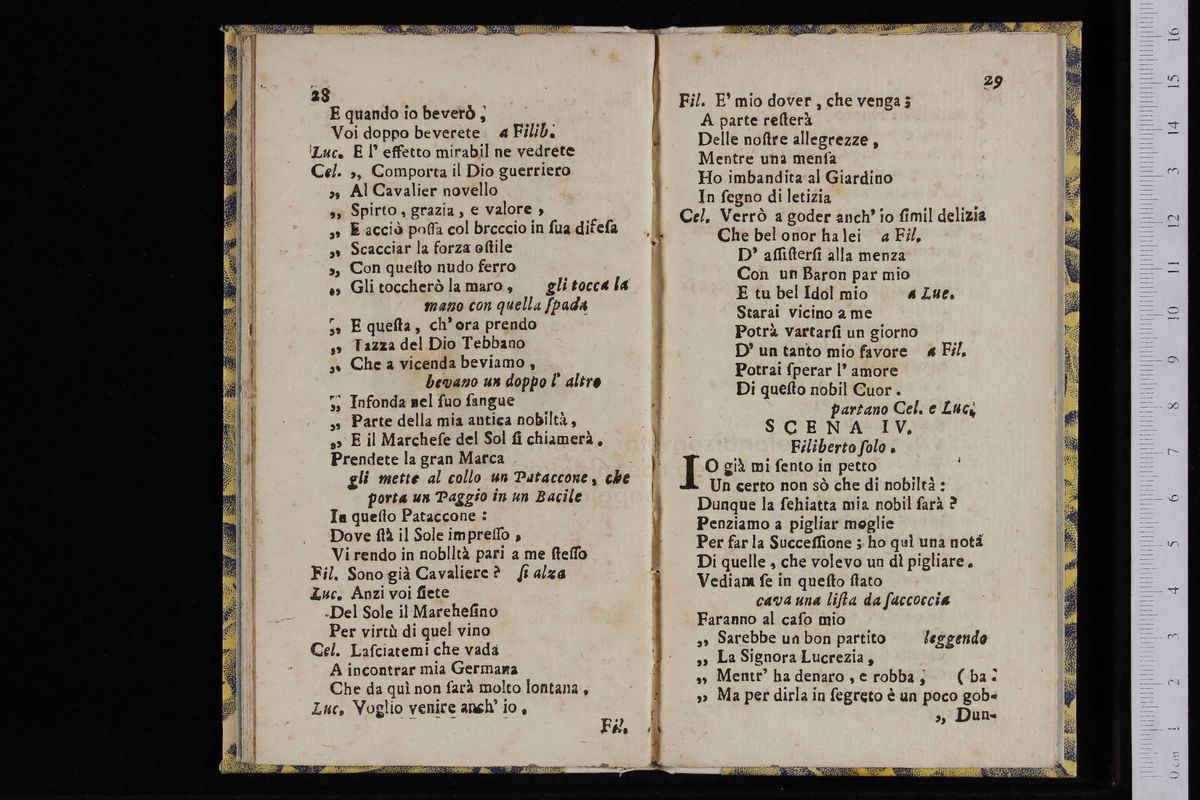 28
E quando io beverò ;
Voi doppo beverete a Filib.
Luc. E l' effetto mirabil ne vedrete
Cel. ,, Comporta il Dio guerriero
,, Al Cavalier novello
,, Spirto , grazia , e valore ,
,, E acciò poſſa col brcccio in ſua difeſa
,, Scacciar la forza oſtile
,, Con queſto nudo ferro
,, Gli toccherò la maro , gli tocca la
mano con quella ſpada
,, E queſta , ch' ora prendo
,, Tazza del Dio Tebbano
,, Che a vicenda beviamo ,
bevano un doppo l' altro
,, Infonda nel ſuo ſangue
,, Parte della mia antica nobiltà ,
,, E il Marcheſe del Sol ſi chiamerà .
Prendete la gran Marca
gli mette al collo un Pataccone , che
porta un Paggio in un Bacile
In queſto Pataccone :
Dove ſtà il Sole impreſſo ,
Vi rendo in nobIltà pari a me ſteſſo
Fil. Sono già Cavaliere ? ſi alza
Luc. Anzi voi ſiete
Del Sole il Mareheſino
Per virtù di quel vino
Cel. Laſciatemi che vada
A incontrar mia Germana
Che da quì non ſarà molto lontana ,
Luc. Voglio venire anch' io .
Fil.
29
Fil. E' mio dover , che venga ;
A parte reſterà
Delle noſtre allegrezze ,
Mentre una menſa
Ho imbandita al Giardino
In ſegno di letizia
Cel. Verrò a goder anch' io ſimil delizia
Che bel onor ha lei a Fil.
D' aſſiſterſi alla menza
Con un Baron par mio
E tu bel Idol mio a Lue.
Starai vicino a me
Potrà vartarſi un giorno
D' un tanto mio favore a Fil.
Potrai ſperar l' amore
Di queſto nobil Cuor .
partano Cel. e Luc.
SCENA IV.
Filiberto ſolo .
IO già mi ſento in petto
Un certo non sò che di nobiltà :
Dunque la ſehiatta mia nobil ſarà ?
Penziamo a pigliar moglie
Per far la Succeſſione ; ho quì una nota
Di quelle , che volevo un dì pigliare .
Vediam ſe in queſto ſtato
cava una liſta da ſaccoccia
Faranno al caſo mio
,, Sarebbe un bon partito leggendo
,, La Signora Lucrezia ,
,, Mentr' ha denaro , e robba ; ( ba :
,, Ma per dirla in ſegreto è un poco gob-
,, Dun-